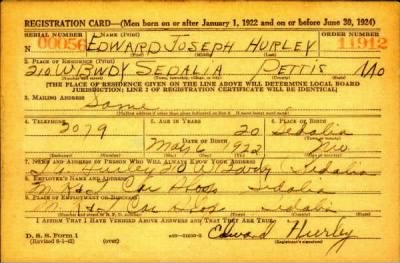 REGISTRATION CARD—(Men born on or after January 1, 1922 and on or before June 30, 1924)
SERIAL NUMBER 1. NAME (Print) ORDER NUMBER
00056 EDWARD JOSEPH HURLEY 11912
(First) (Middle) (Last)
2. PLACE OF RESIDENCE (Print)
210 W BWDY SEDALIA PETTIS MO
[THE PLACE OF RESIDENCE GIVEN ON THE LINE ABOVE WILL DETERMINE LOCAL BOARD
JURISDICTION; LINE 2 OF REGISTRATION CERTIFICATE WILL BE IDENTICAL]
3. MAILING ADDRESS
Same
4. TELEPHONE 5. AGE IN YEARS 6. PLACE OF BIRTH
2079 20 Sedalia
DATE OF BIRTH
Mar 6 1922 Mo
7. NAME AND ADDRESS OF PERSON WHO WILL ALWAYS KNOW YOUR ADDRESS
Hurley 210 W Bdwy Sedalia
8. EMPLOYER'S NAME AND ADDRESS
M K & T Car Shops Sedalia
9. PLACE OF EMPLOYMENT OR BUSINESS
M. K & T Car Shops Sedalia
I AFFIRM THAT I HAVE VERIFIED ABOVE ANSWERS AND THAT THEY ARE TRUE.
D. S. S. Form 1
Edward Hurley
(Registrant's signature)